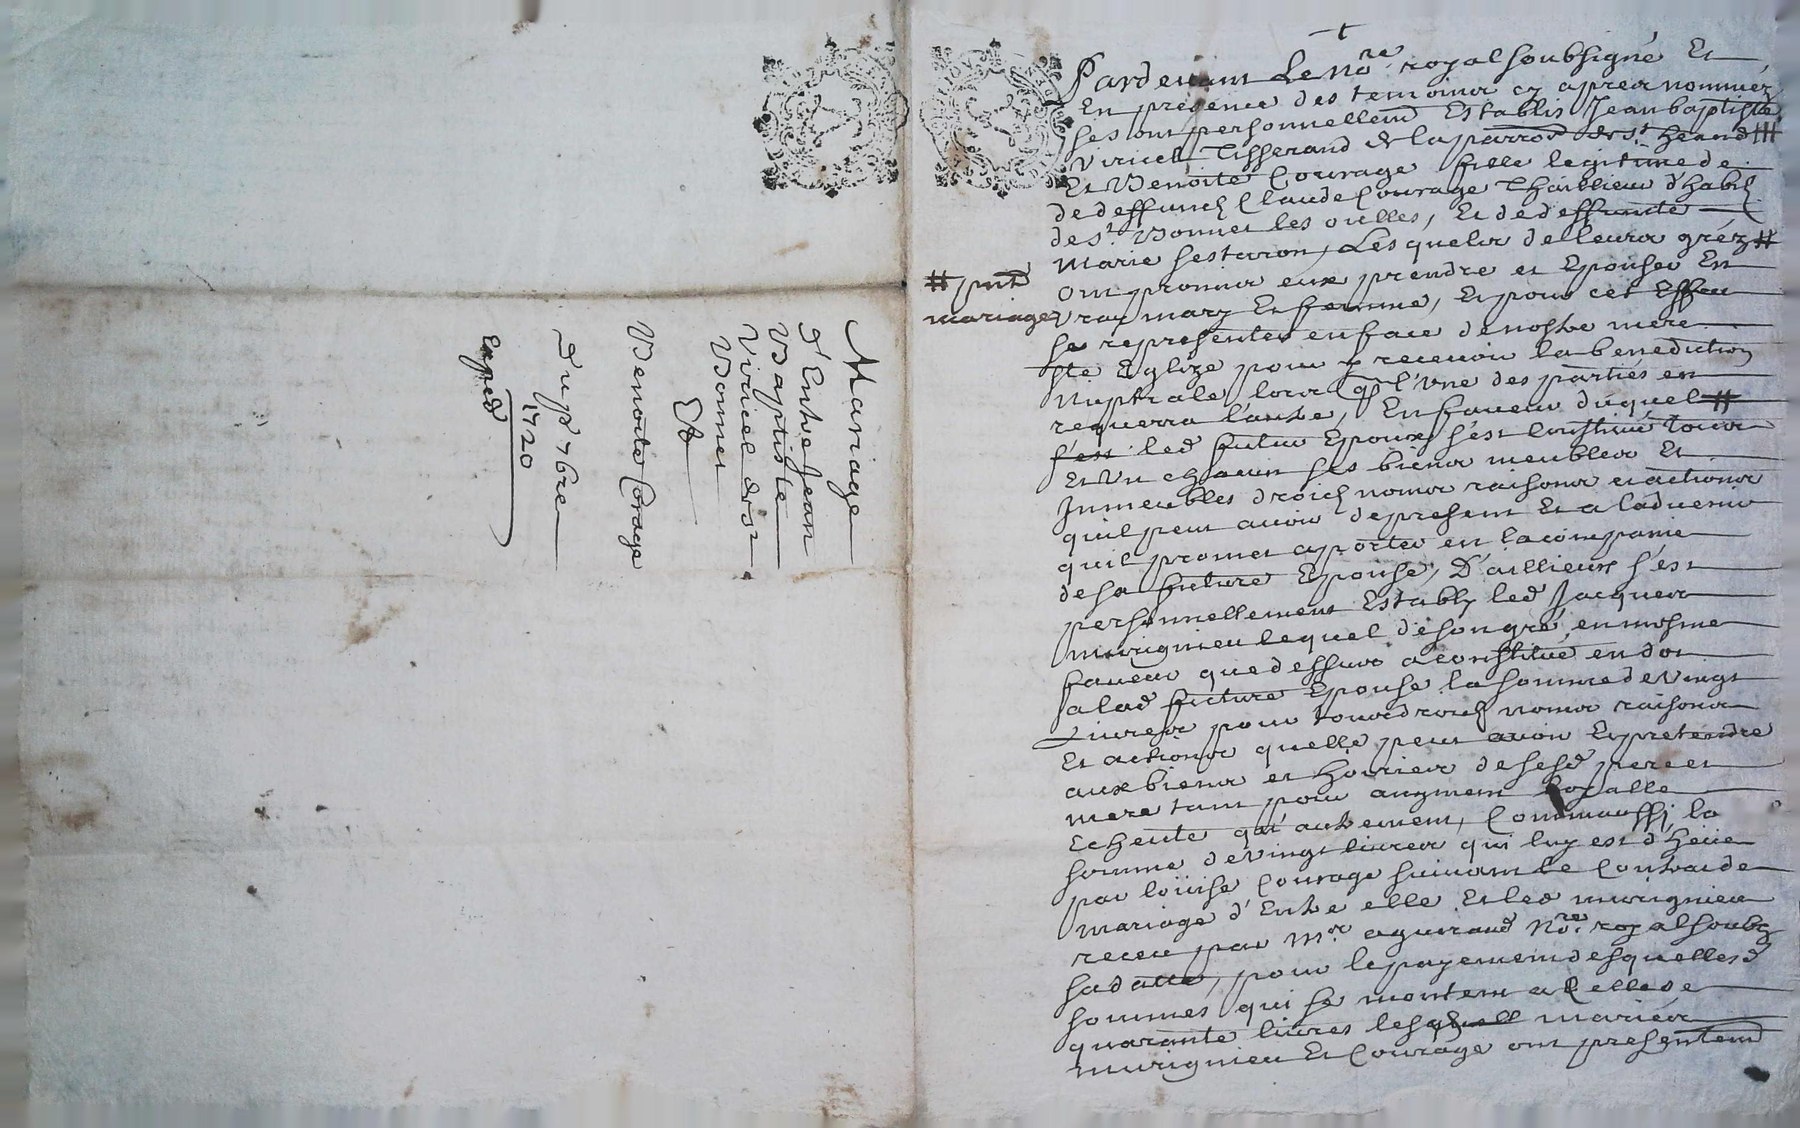 Mariage
d'Entre Jean
Baptiste
Viriel de St
Bonnet
Et
Benoite Corage
Du 7bre
1720
Exped
# pnt
mariage
Pardevant Le Nore royal soubsigné Et
En presence des temoins cy apres nommez
ses ont personnellemt Establis Jean baptiste
Viricel Tisserand de la parroisse de St heand #
Et Benoite Courage fille legitime de
de deffunct Claude Courage Thaillieur d'habitz
de St Bonnet les oulles, Et de deffuncte
Marie sestaron, Lesquels de leurs gréz #
Ont promis eux prendre et Epouser En
vray mary Et femme, Et pour cet Effeu
se representer en face de nostre mere
ste Eglize pour y recevoir la benediction
Nuptiale lors qu l'une des parties en
requerra l'autre, En faveur duquel #
s'est led futur Epoux s'est Constitué tous
et Un chacun ses biens meubles Et
Immeubles droictz noms raisons et actions
quil peut avoir de present Et a l'advenir
quil promet aporter en la compagnie
de sa future Epouse, D'aillieurs s'est
personnellement Estably led Jacques
murignieu lequel de son gré, en mesme
faveur que dessus a constitué en dot
a lad future Epouse la somme de vingt
Livres pour tous droictz noms raisons
Et actions quelle peut avoir Et pretendre
aux biens et hoiries de sesd pere et
mere tant pour augment loyalle
Echeute qu'autrement, Comm'aussi la
somme de vingt livres qui luy est d'heüe
par loüise Courage suivant le Contrat de
mariage d'Entre elle Et led murignieu
receu par Mr aguiraud Nore royal soubz
sa datte, pour le payement desquelles d
sommes qui se montent a Celle de
quarante livres lesquell mariés
murignieu Et Courage ont presentemt